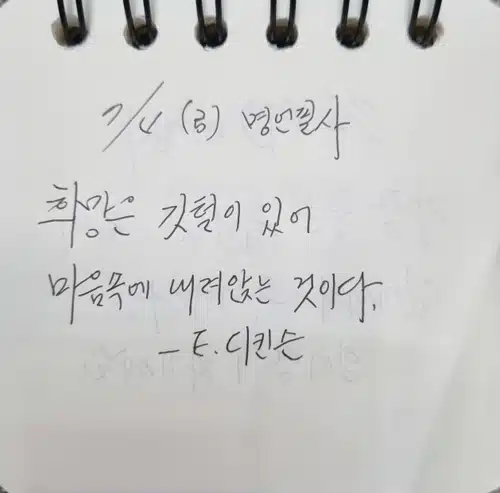 7/4 (금) 명언필사
희망은 깃털이 있어
마음목에 내려앉는 것이다.
- E. 디킨슨